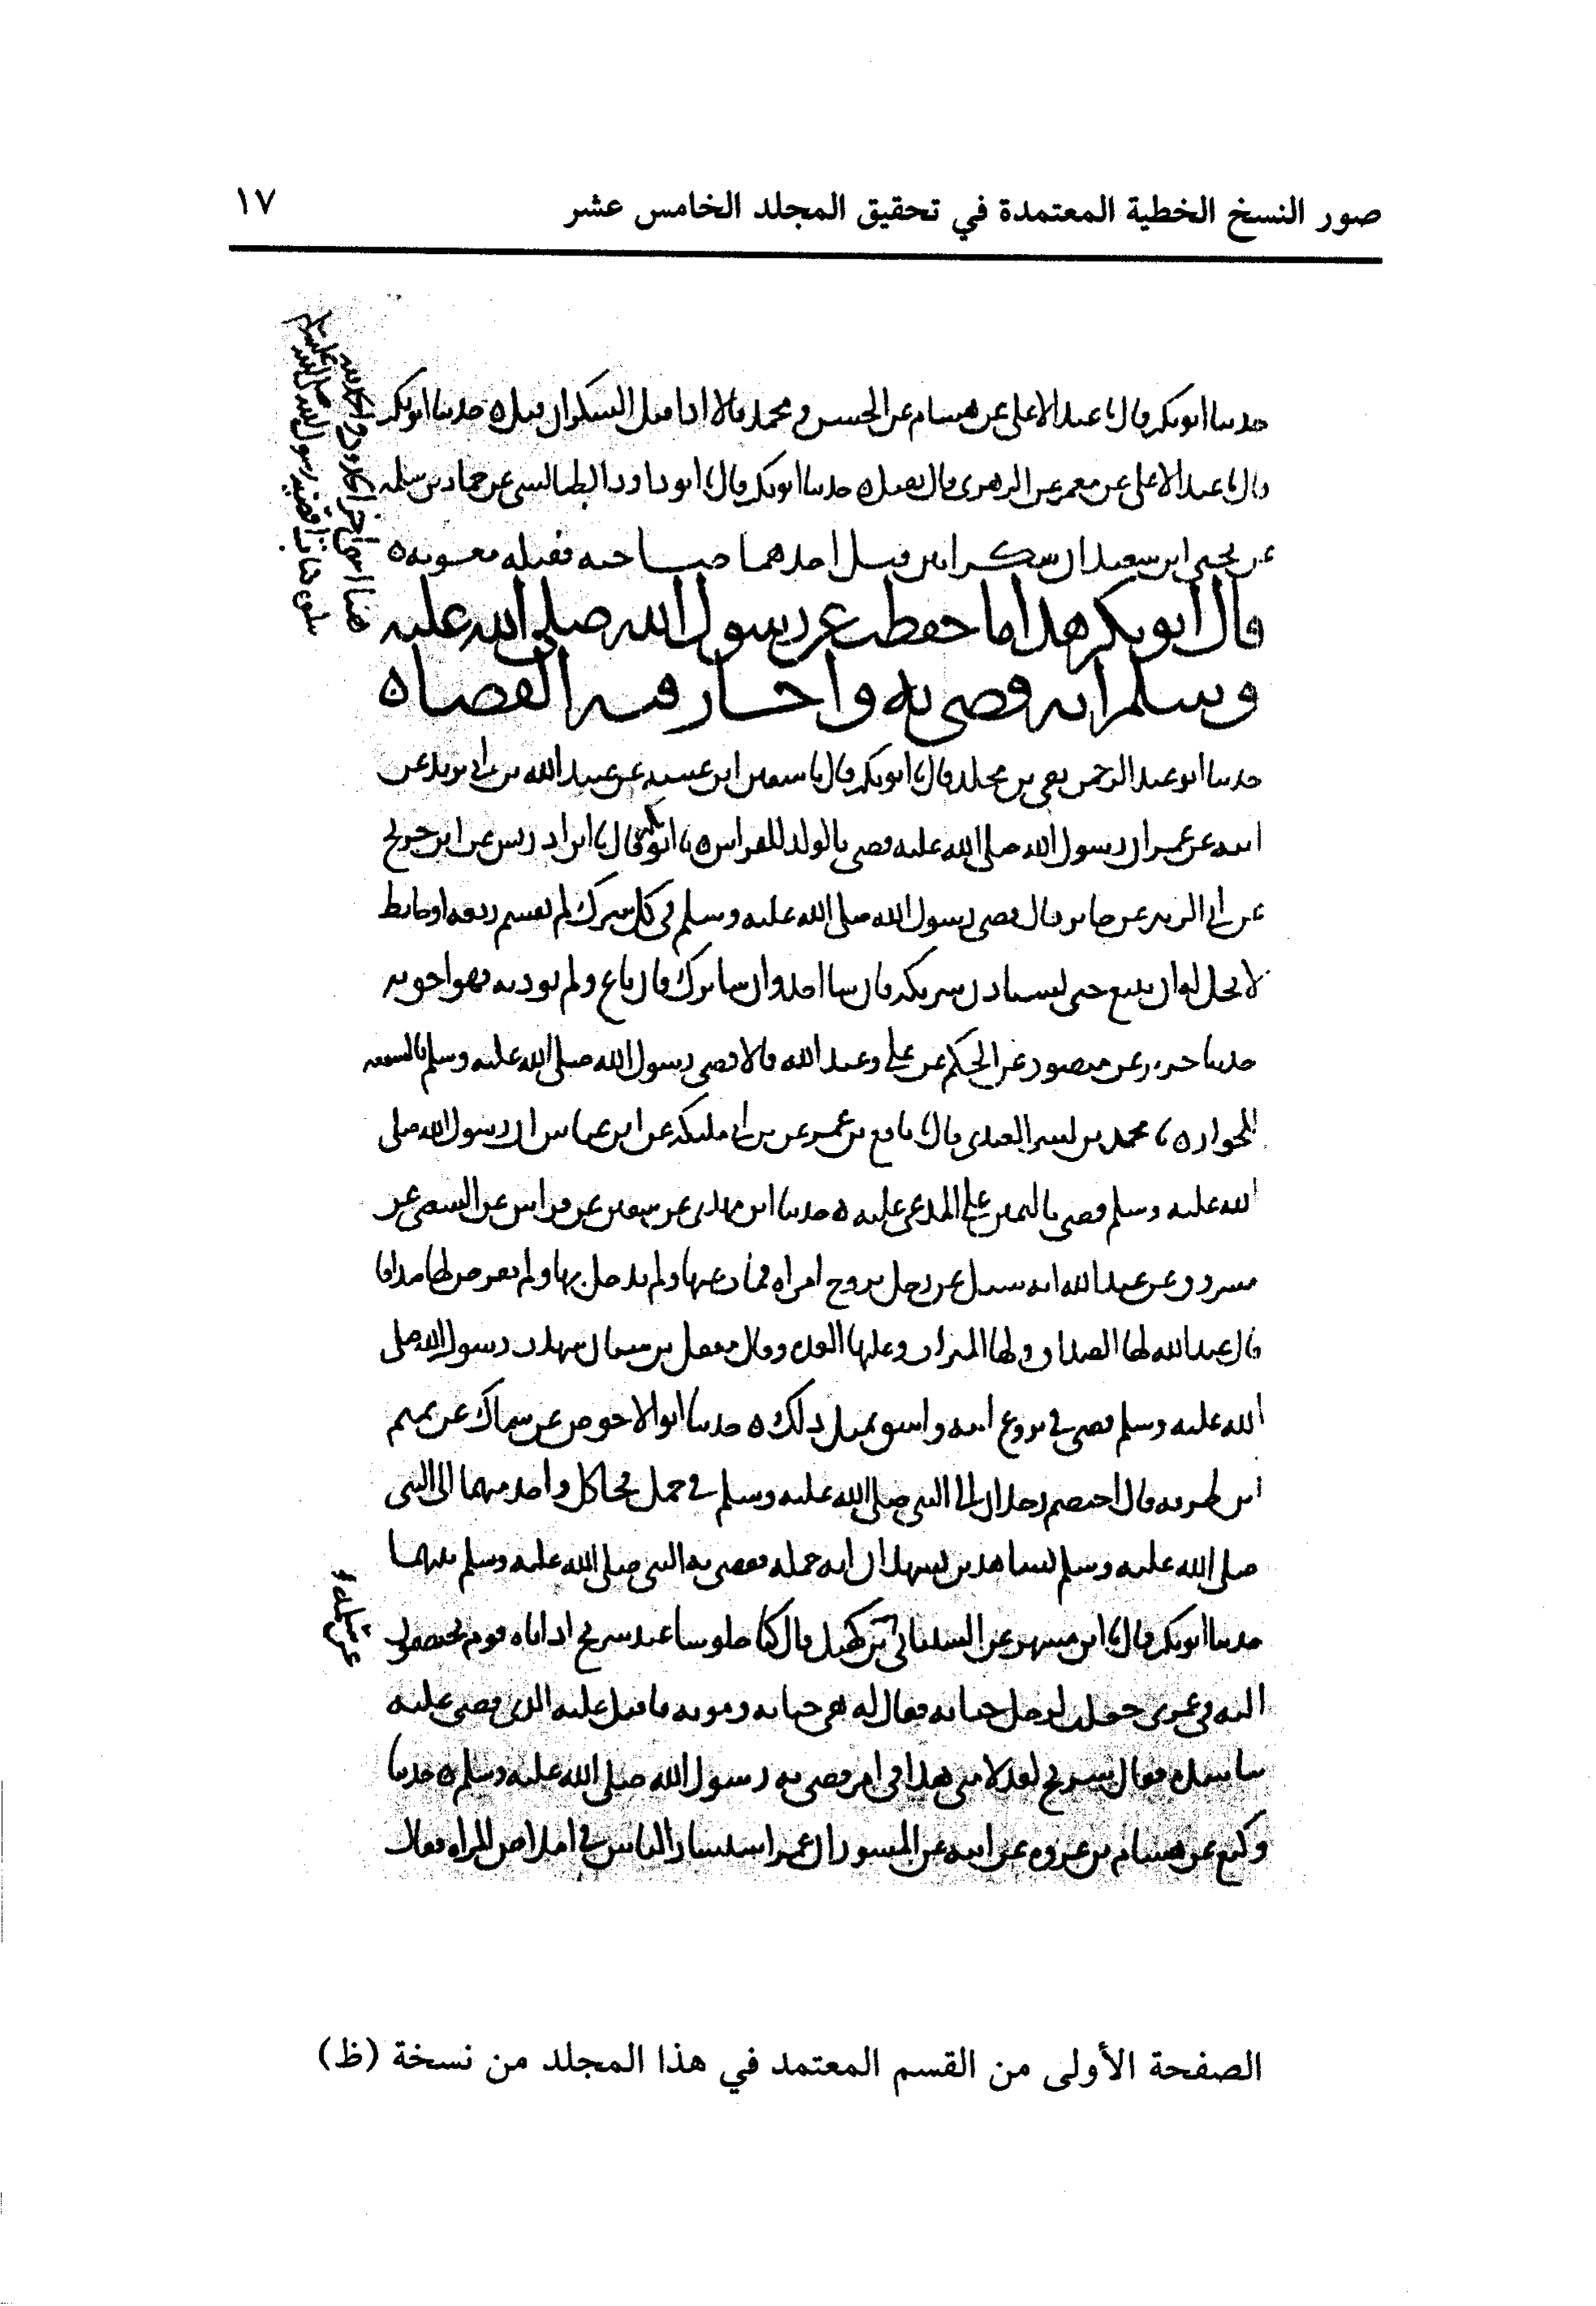 صور النسخ الخطية المعتمدة في تحقيق المجلد الخامس عشر ١٧
حدثنا ابوبكر قال نا عبد الاعلى عن هشام عن الحسن ومحمد قالا اذا قتل السكران قتل ه حدثنا ابوبكر
قال نا عبد الاعلى عن معمر عن الزهرى قال يقتل ه حدثنا ابوبكر قال نا ابو داود الطيالسى عن حماد بن سلمه
عن يحيى ابن سعيد ان سكرانين قتل احدهما صاحبه فقتله معويه ه
قال ابو بكر هذا ما حفظت عن رسول الله صلى الله عليه
وسلم انه قضى به واجاز فيه القضاه
حدثنا ابو عبد الرحمن بقي بن مخلد قال نا ابوبكر قال نا سفين ابن عيينه عن عبيد الله بن ابي يزيد عن
ابيه عن عمر ان رسول الله صلى الله عليه قضى بالولد للفراش ه نا ابو بكر قال نا ابن ادريس عن ابن جريج
عن ابي الزبير عن جابر قال قضى رسول الله صلى الله عليه وسلم في كل شرك لم يقسم ربعه او حايط
لا يحل له ان يبيع حتى يستاذن شريكه فان شا اخذ وان شا ترك فان باع ولم يوذنه فهو احق به
حدثنا جرير عن منصور عن الحكم عن علي وعبد الله قالا قضى رسول الله صلى الله عليه وسلم بالشفعه
للجوار ه نا محمد بن بشر العبدى قال نا نافع بن عمر عن بن ابي مليكه عن ابن عباس ان رسول الله صلى
الله عليه وسلم قضى باليمين على المدعى عليه ه حدثنا ابن مهدى عن سفين عن فراس عن الشعبي عن
مسروق عن عبد الله انه سيل عن رجل تزوج امراه فمات عنها ولم يدخل بها ولم يفرض لها صداقا
قال عبد الله لها الصداق ولها الميراث وعليها العده وقال معقل بن سنان شهدت رسول الله صلى
الله عليه وسلم قضى في بروع ابنه واشق بمثل ذلك ه حدثنا ابو الاحوص عن سماك عن تميم
ابن طرفه قال اختصم رجلان الى النبي صلى الله عليه وسلم في جمل فجا كل واحد منهما الى النبي
صلى الله عليه وسلم بشاهدين يشهدان انه جمله فقضى به النبي صلى الله عليه وسلم بينهما
حدثنا ابوبكر قال نا ابن مسهر عن الشيباني بن كهيل قال كنا جلوسا عند شريح اذ اتاه قوم يختصمون
اليه في عمرى جعلت لرجل حياته فقال له هي حياته وموته فاقبل عليه الذى قضى عليه
يناشده فقال شريح لقد لامنى هذا في امر قضى به رسول الله صلى الله عليه وسلم ه حدثنا
وكيع عن هشام بن عروه عن ابيه عن المسور ان عمر استشار الناس في املاص المراه فقال
عن سلمه
الصفحة الأولى من القسم المعتمد في هذا المجلد من نسخة (ظ)